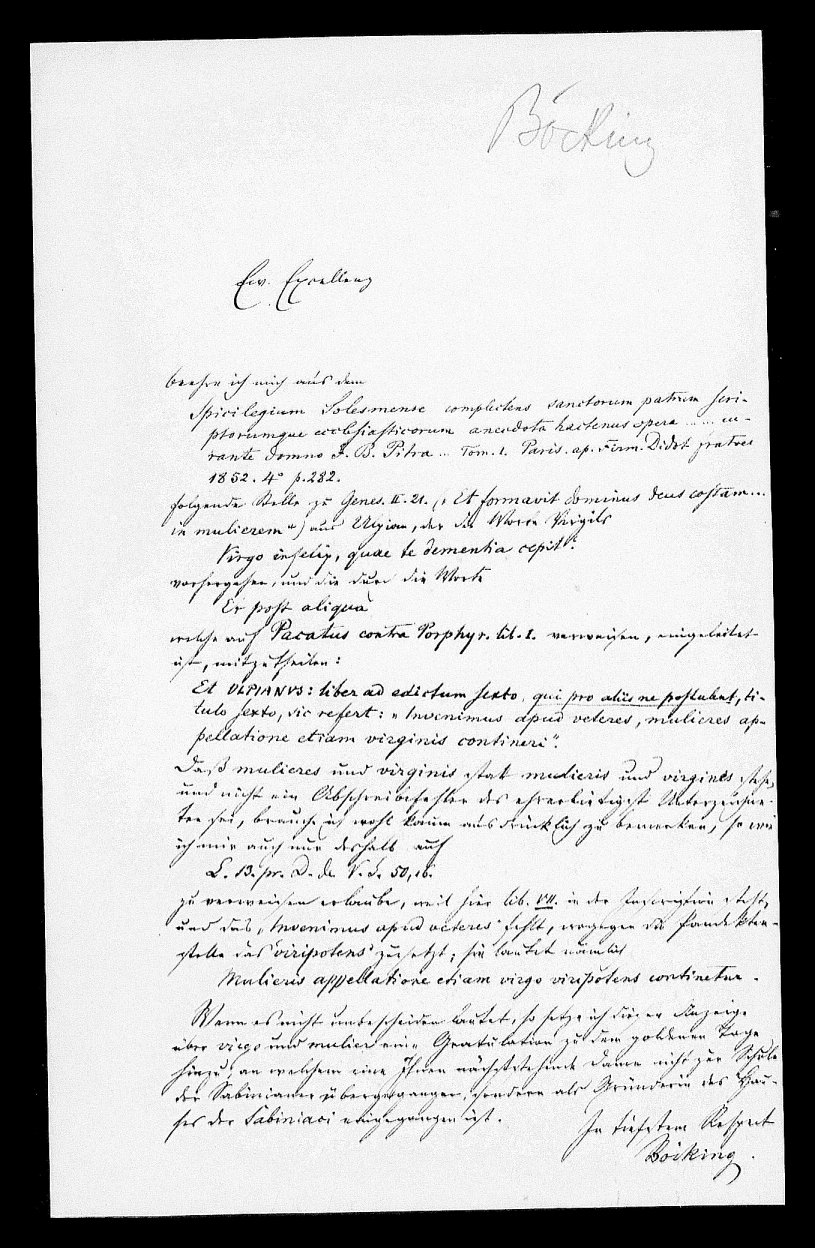 Böcking
Ew. Excellenz
beehre ich mich aus dem
Spicilegium Solesmense complectens sanctorum patrum scri-
ptorumque ecclesiasticorum anecdota hactenus opera ...... cu-
rante domno J. B. Pitra ... Tom. I. Paris. ap. Firm. Didot fratres
1852. 4° p. 282.
folgende Stelle zu Genes. II. 21. („Et formavit dominus deus costam...
in mulierem“) aus Ulpian, der die Worte Virgils
Virgo infelix, quae te dementia cepit“.
vorhergehen, und die durch die Worte
Et post aliqua
welche auf Pacatus contra Porphyr. lib. I. verweisen, eingeleitet
ist, mitzutheilen:
Et VLPIANVS: liber ad edictum sexto, qui pro aliis ne postulent, ti-
tulo sexto, sic refert: „Invenimus apud veteres, mulieres ap-
pellatione etiam virginis contineri“.
Daß mulieres und virginis statt mulieris und virgines stehe,
und nicht ein Abschreibefehler des ehrerbietigst Unterzeichne-
ten sei, brauche ich wohl kaum ausdrücklich zu bemerken, so wie
ich mir auch nur deshalb auf
L. 13. pr. D. de V. S. 50, 16.
zu verweisen erlaube, weil hier lib. VII. in der Inscription steht,
und das „Invenimus apud veteres“ fehlt, wogegen die Pandekten-
stelle das 'viripotens' zusetzt; sie lautet nämlich
Mulieris appellatione etiam virgo viripotens continetur.
Wenn es nicht unbescheiden lautet, so setze ich dieser Anzeige
über virgo und mulier eine Gratulation zu dem goldenen Tage
hinzu, an welchem eine Ihnen nächststehende Dame nicht zur Schule
der Sabinianer übergegangen, sondern als Gründerin des Hau-
ses der Sabiniaci eingegangen ist.
In tiefstem Respect
Böcking.